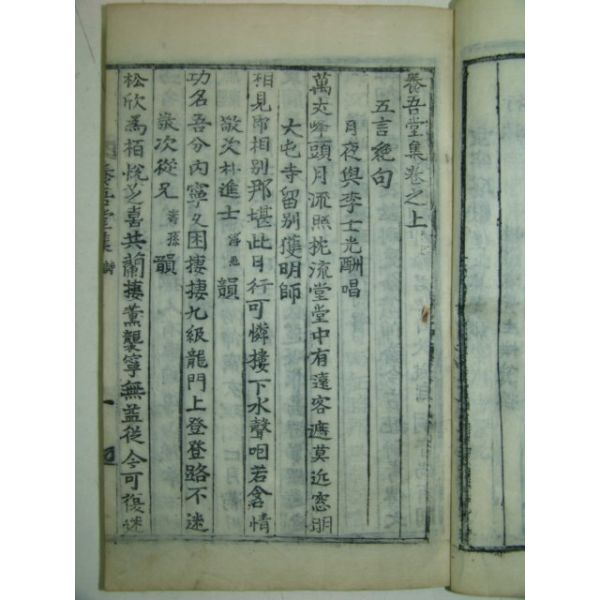 養吾堂集卷之上
五言絶句
月夜與李士光酬唱
萬丈峰頭月流照枕流堂堂中有遠客遮莫近窓明
大屯寺留別獲明師
相見即相別那堪此日行可憐樓下水聲咽若含情
敬次朴進士韻
功名吾分內寧久困捿捿九級龍門上登登路不迷
敬次從兄韻
松欣為栢悅芝喜共蘭捿薰襲寧無益從今可復迷
養吾堂集 一